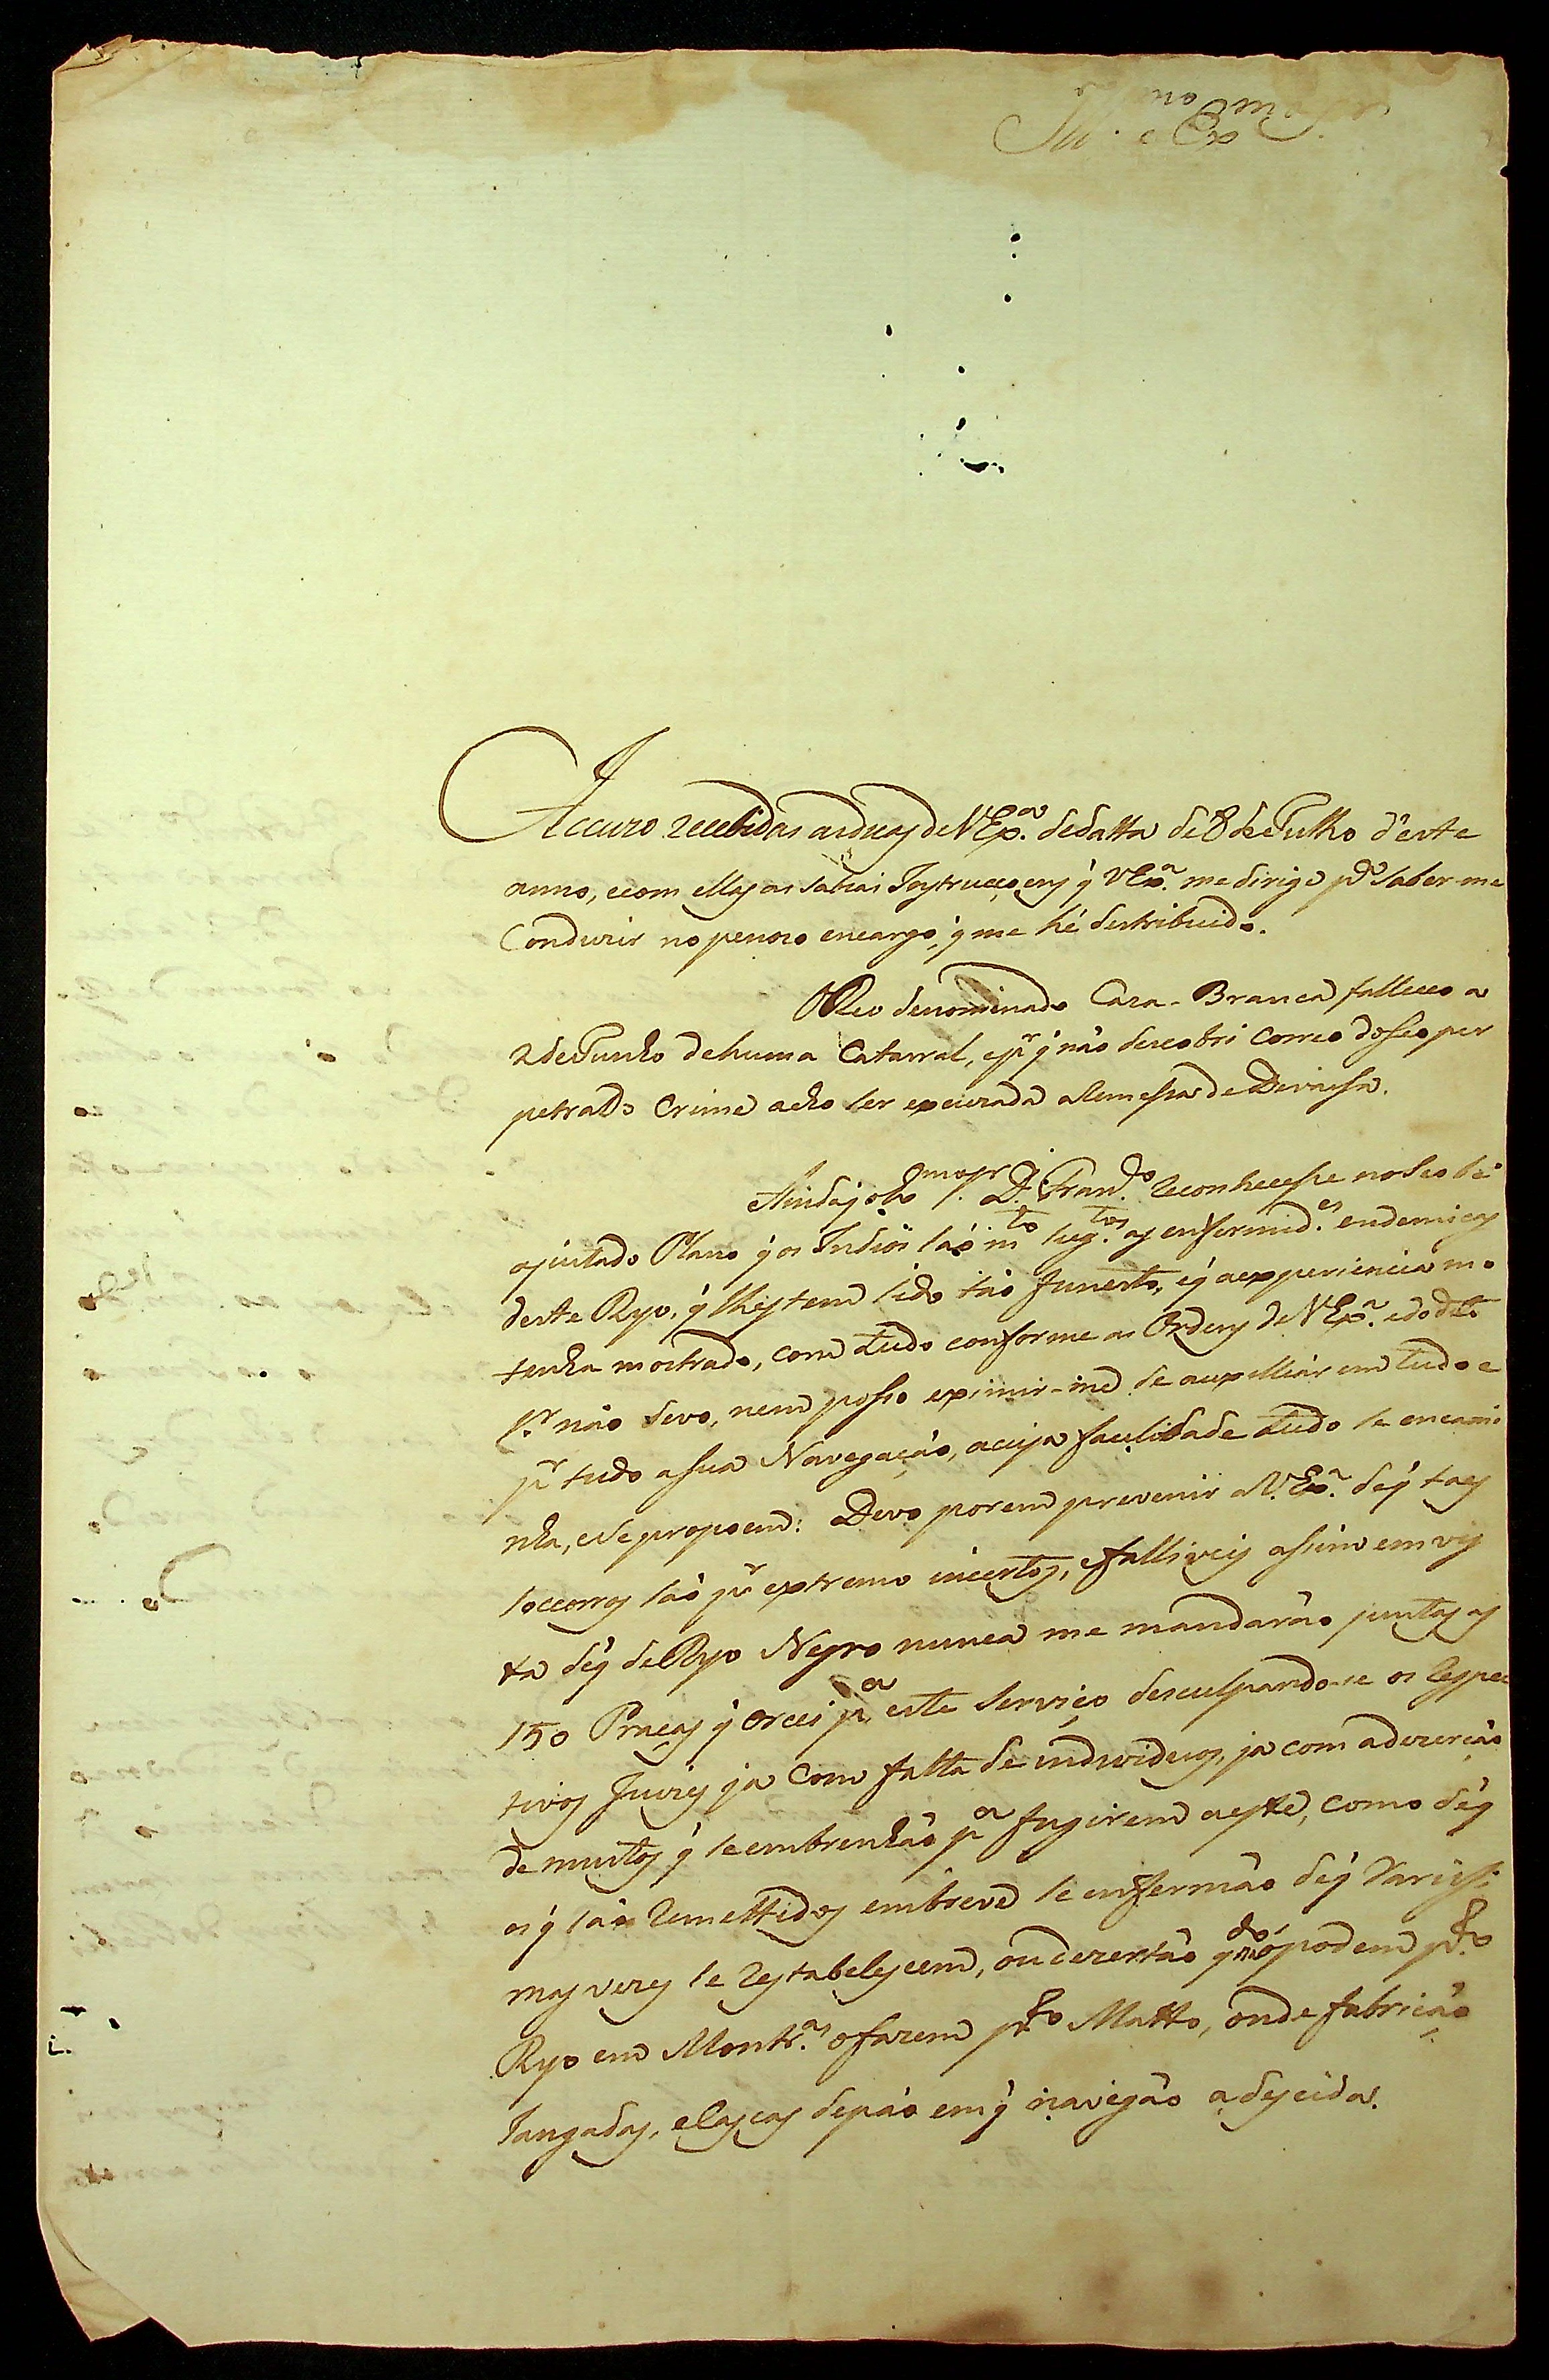 Ill.mo e Ex.mo
Accuzo recebidas as duas de VEx.ª de datta de 8 de Julho d'este
anno, e com ellas as sabias Instrucçoens q̃ VEx.ª me dirige p.ª saber-me
Conduzir no penozo encargo, q̃ me hé destribuido.
O Reo denominado Cara-Branca falleceo a
2 de Junho de huma Catarral, e p.r q̃ não descobri Correo do seo per
petrado Crime acho ser excuzada a Remessa de Devassa.
Ainda q̃ o D. Fran.do reconhecesse no seo bẽ
ajustado Plano q̃ os Indios são m.to sug.tos as enfermid.es endemicas
deste Ryo, q̃ lhes tem sido tão funesto, e q̃ a expperiencia mo
tenha mostrado, com tudo conforme as Ordens de VEx.ª e do d.to
S.r não devo, nem posso eximir-me de auxilliár em tudo e
p.r tudo a sua Navegação, a cuja facilidade tudo se encami
nha, e se propoem: Devo porem prevenir a V.Ex.ª de q̃ taes
soccorros são p.r extremo incertos, e falliveis assim em vis
ta de q̃ de Ryo Negro nunca me mandarão juntas as
150 Praças q̃ orcei p.ª este serviço desculpando-se os respec
tivos Juizes ja Com falta de individuos, ja com a dezerção
de muitos q̃ se embrenhão p.ª fugirem a este, como de q̃
os q̃ são remettidos em breve se enfermão de q̃ Varissi
mas vezes se restabelescem, ou dezertão q.do não podem p.lo
Ryo em Montr.as o fazem p.lo Matto, onde fabricão
Jangadas, e Cascas de páo em q̃ navegão a descida.